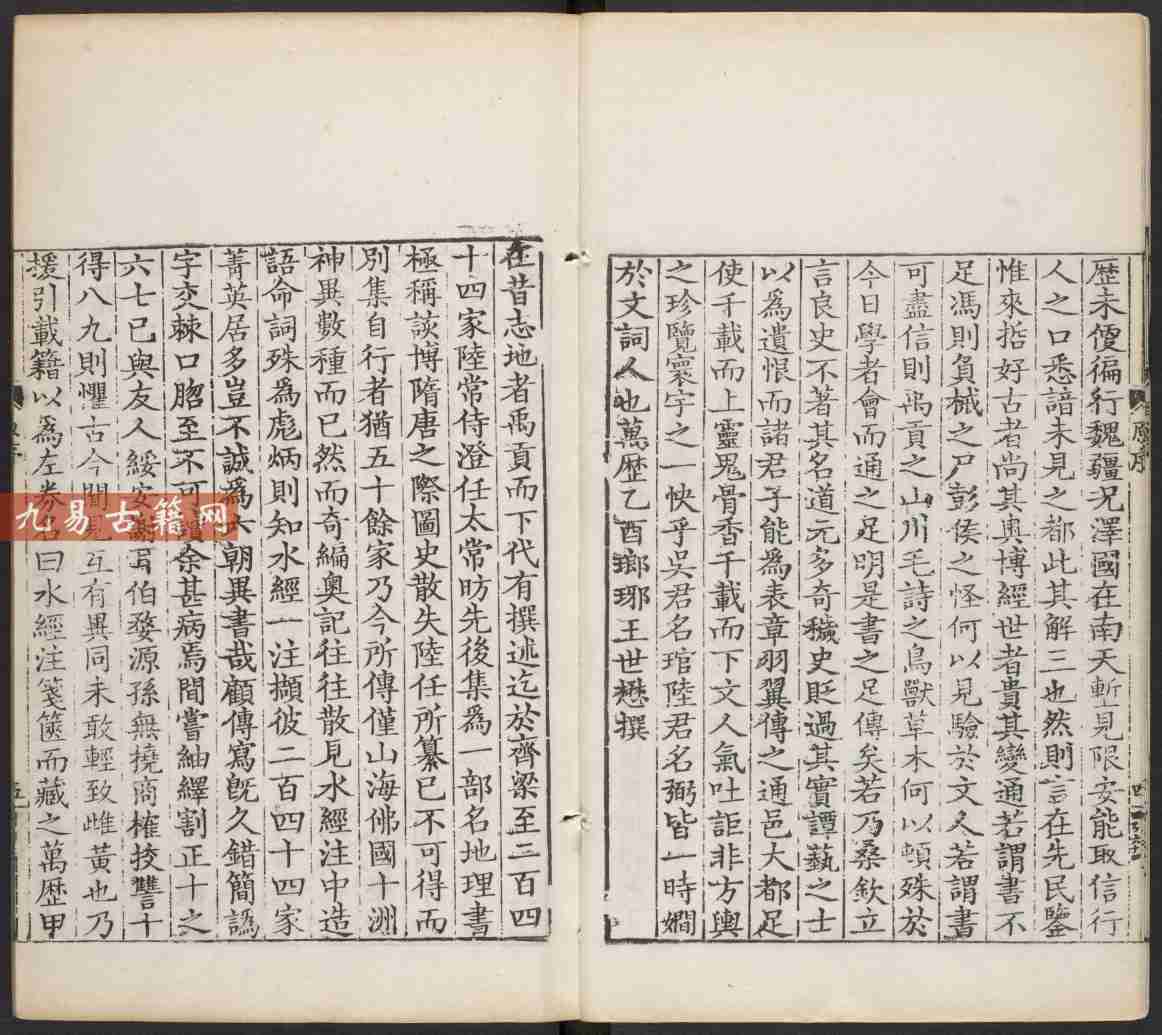 歷未便徧行魏疆况澤國在南天塹見限安能取信行
人之口悉諳未見之都此其解三也然則言在先民鑒
惟來哲好古者尚其奥博經世者貴其變通若謂書不
足馮則負棫之尸彭侯之怪何以見驗於文人若謂書
可盡信則禹貢之山川毛詩之鳥獸草木何以頓殊於
今日學者會而通之足明是書之足傳矣若乃桑欽立
言良史不著其名道元多奇穢史貶過其實譚藝之士
以爲遺恨而諸君子能爲表章羽翼傳之通邑大都足
使千載而上靈鬼骨香千載而下文人氣吐詎非方輿
之珍覽寰宇之一快乎吳君名琯陸君名弼皆一時嫺
於文詞人也萬歷乙酉瑯琊王世懋撰
在昔志地者禹貢而下代有撰述迄於齊梁至二百四
十四家陸常侍澄任太常昉先後集爲一部名地理書
極稱談博隋唐之際圖史散失陸任所纂已不可得而
別集自行者猶五十餘家乃今所傳僅山海佛國十洲
神異數種而已然而奇編奥記往往散見水經注中造
語命詞殊爲彪炳則知水經一注擷彼二百四十四家
菁英居多豈不誠爲六朝異書哉顧傳寫旣久錯簡譌
字交棘口脗至不可讀余甚病焉間嘗紬繹割正十之
六七已與友人綏安謝耳伯婺源孫無撓商榷挍讐十
得八九則懼古今聞見互有異同未敢輕致雌黃也乃
援引載籍以爲左券名曰水經注箋篋而藏之萬歷甲
九易古籍网